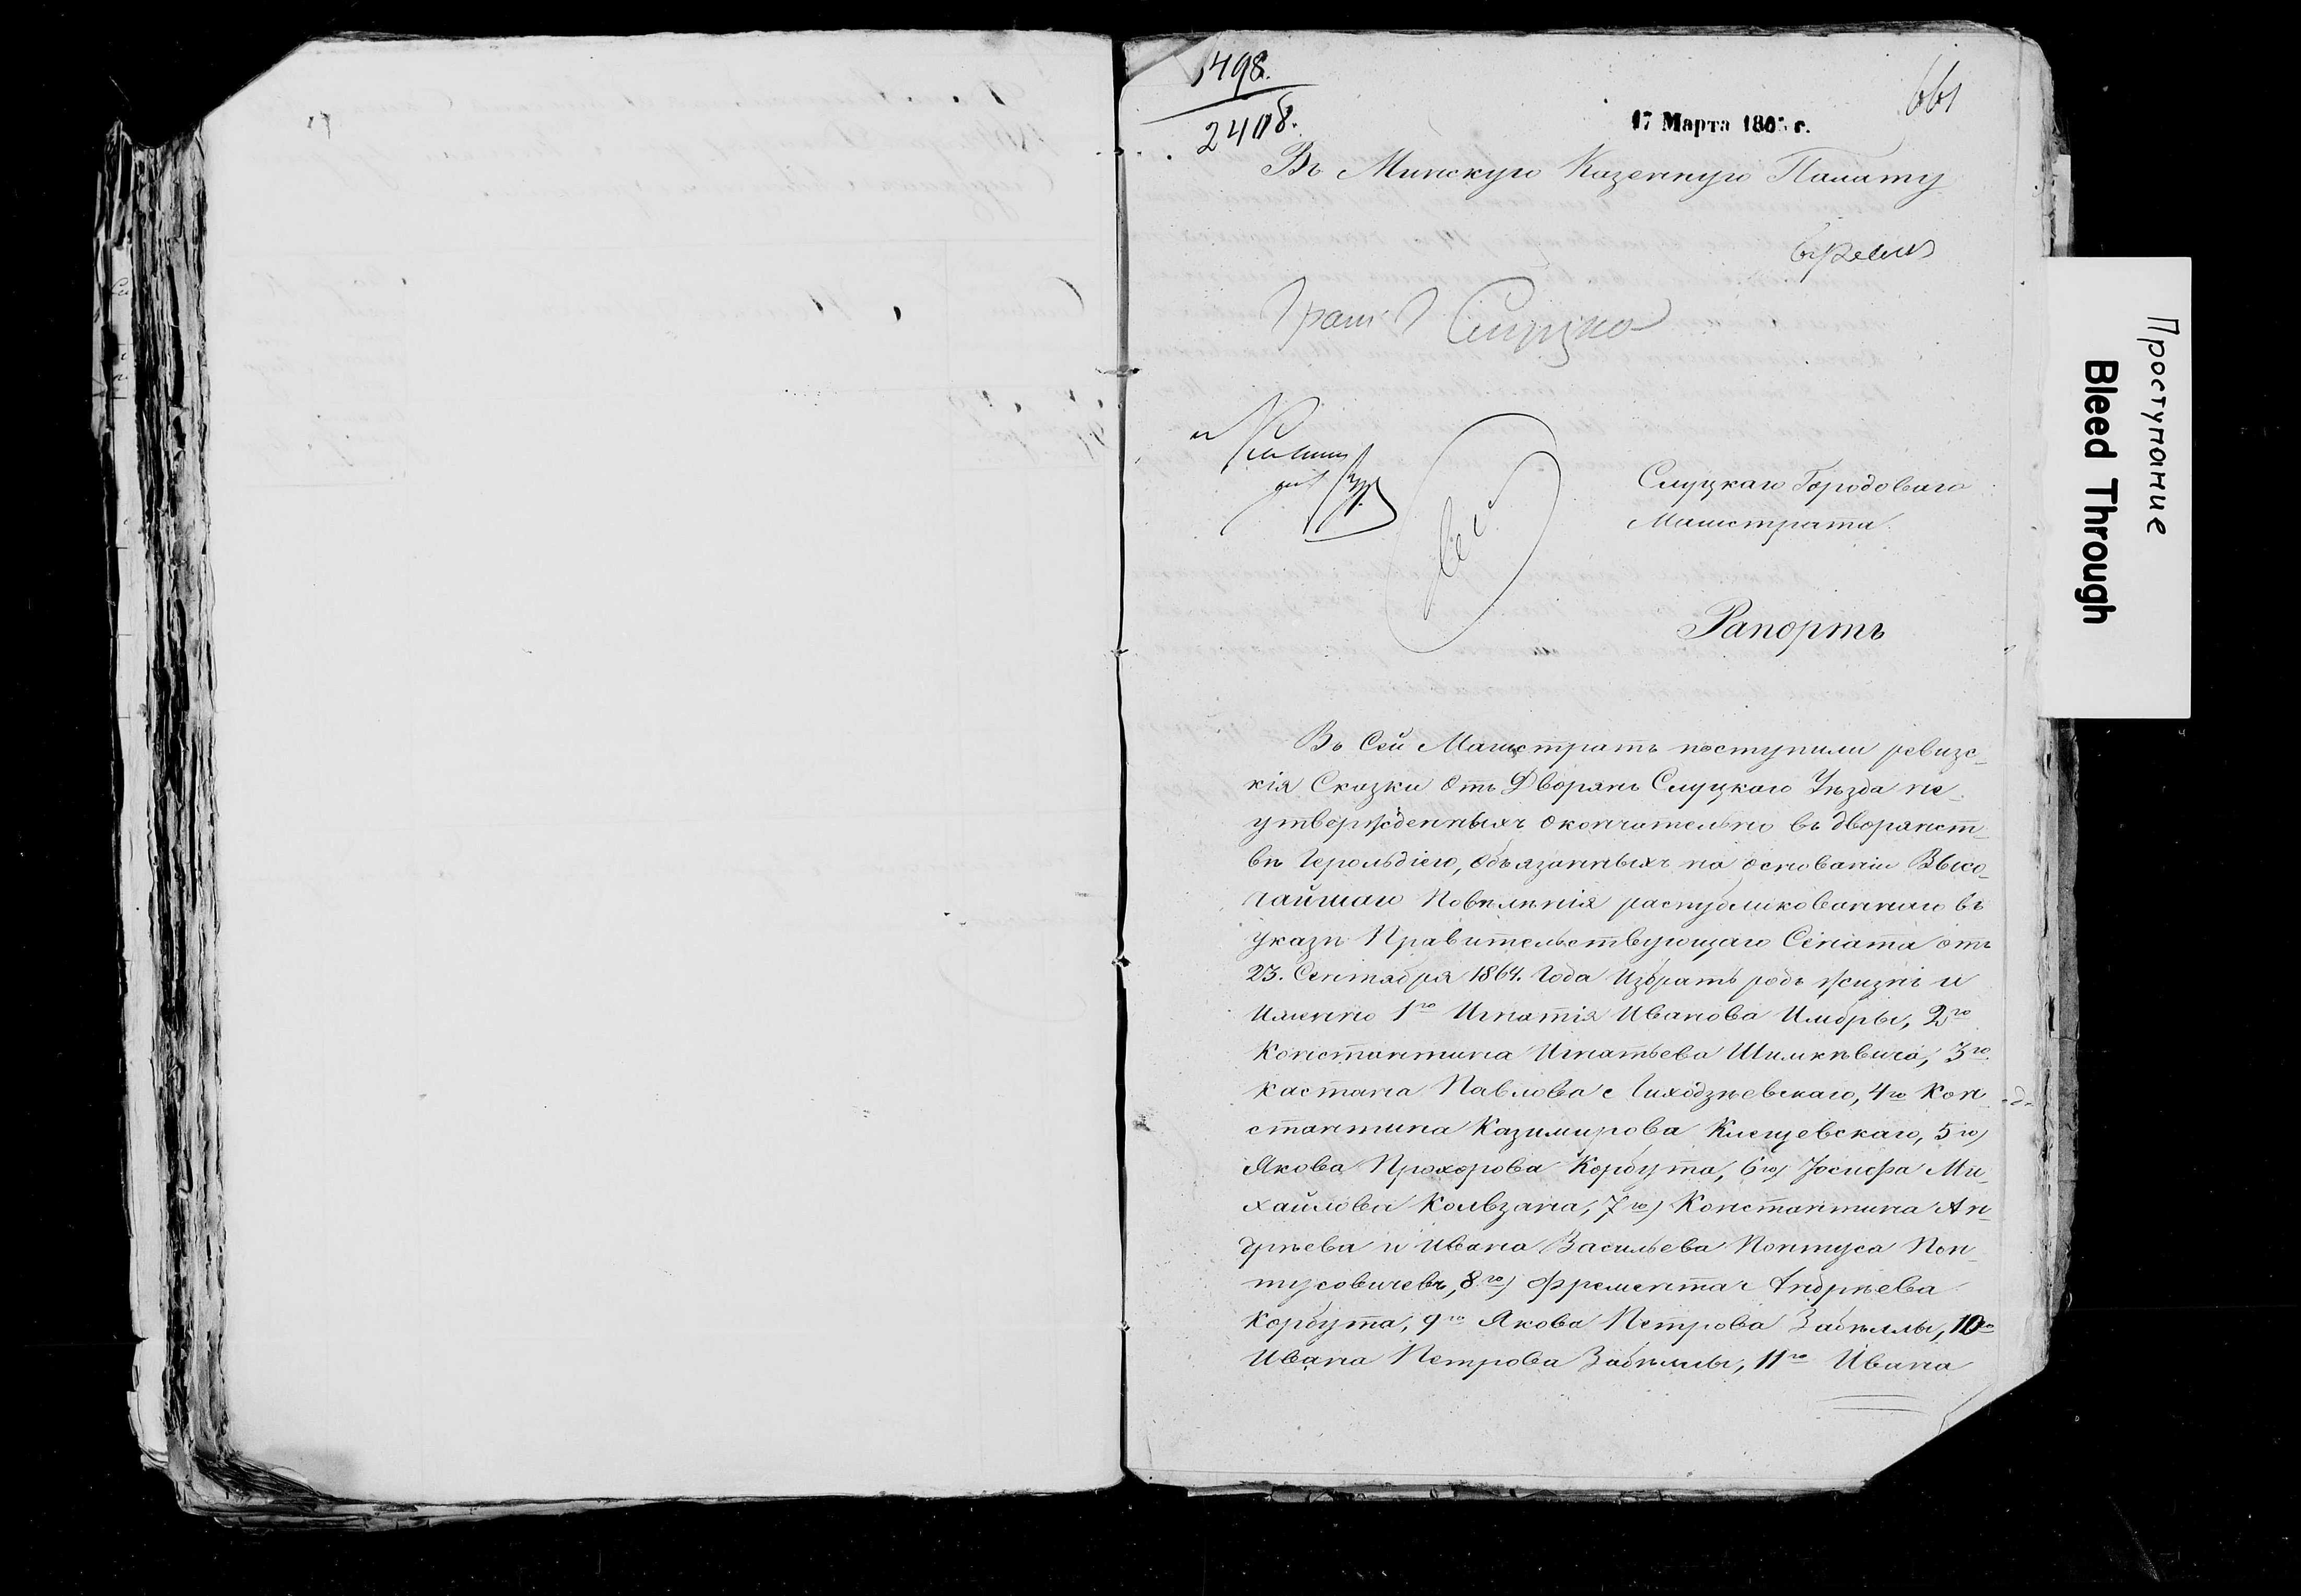 498.
2408.
661
17 Марта 186 г.
Въ Минскую Казенную Палату
Слуцкаго Городоваго
Магистрата.
Рапортъ
Въ Сей Магистратъ поступили ревизс-
кія Сказки Отъ Дворянъ Слуцкаго Уѣзда не-
утвержденныхъ Окончательно въ дворянст-
вѣ Герольдіею, Обязанныхъ на основаніи Высо-
чайшаго Повелѣнія распубликованнаго въ
указѣ Правительствующаго Сената отъ
23. Сентября 1864. Года Избрать родъ жизни и
Именно 1го Игнатія Иванова Цыбры, 2го
Константина Игнатьева Шимкѣвича, 3го
Кастана Павлова Гиходзѣевскаго, 4го Кон-
стантина Казимирова Клещевскаго, 5го)
Якова Прохорова Корбута, 6го) Іосифа Ми-
хайлова Кользана, 7го) Константина Ан-
дрѣева и Ивана Васильева Понтуса Пон-
тусовичевъ, 8го) Андрѣева
Корбута, 9го Якова Петрова Забѣллы, 10го
Ивана Петрова Забѣллы, 11го Ивана
Проступание
Bleed Through